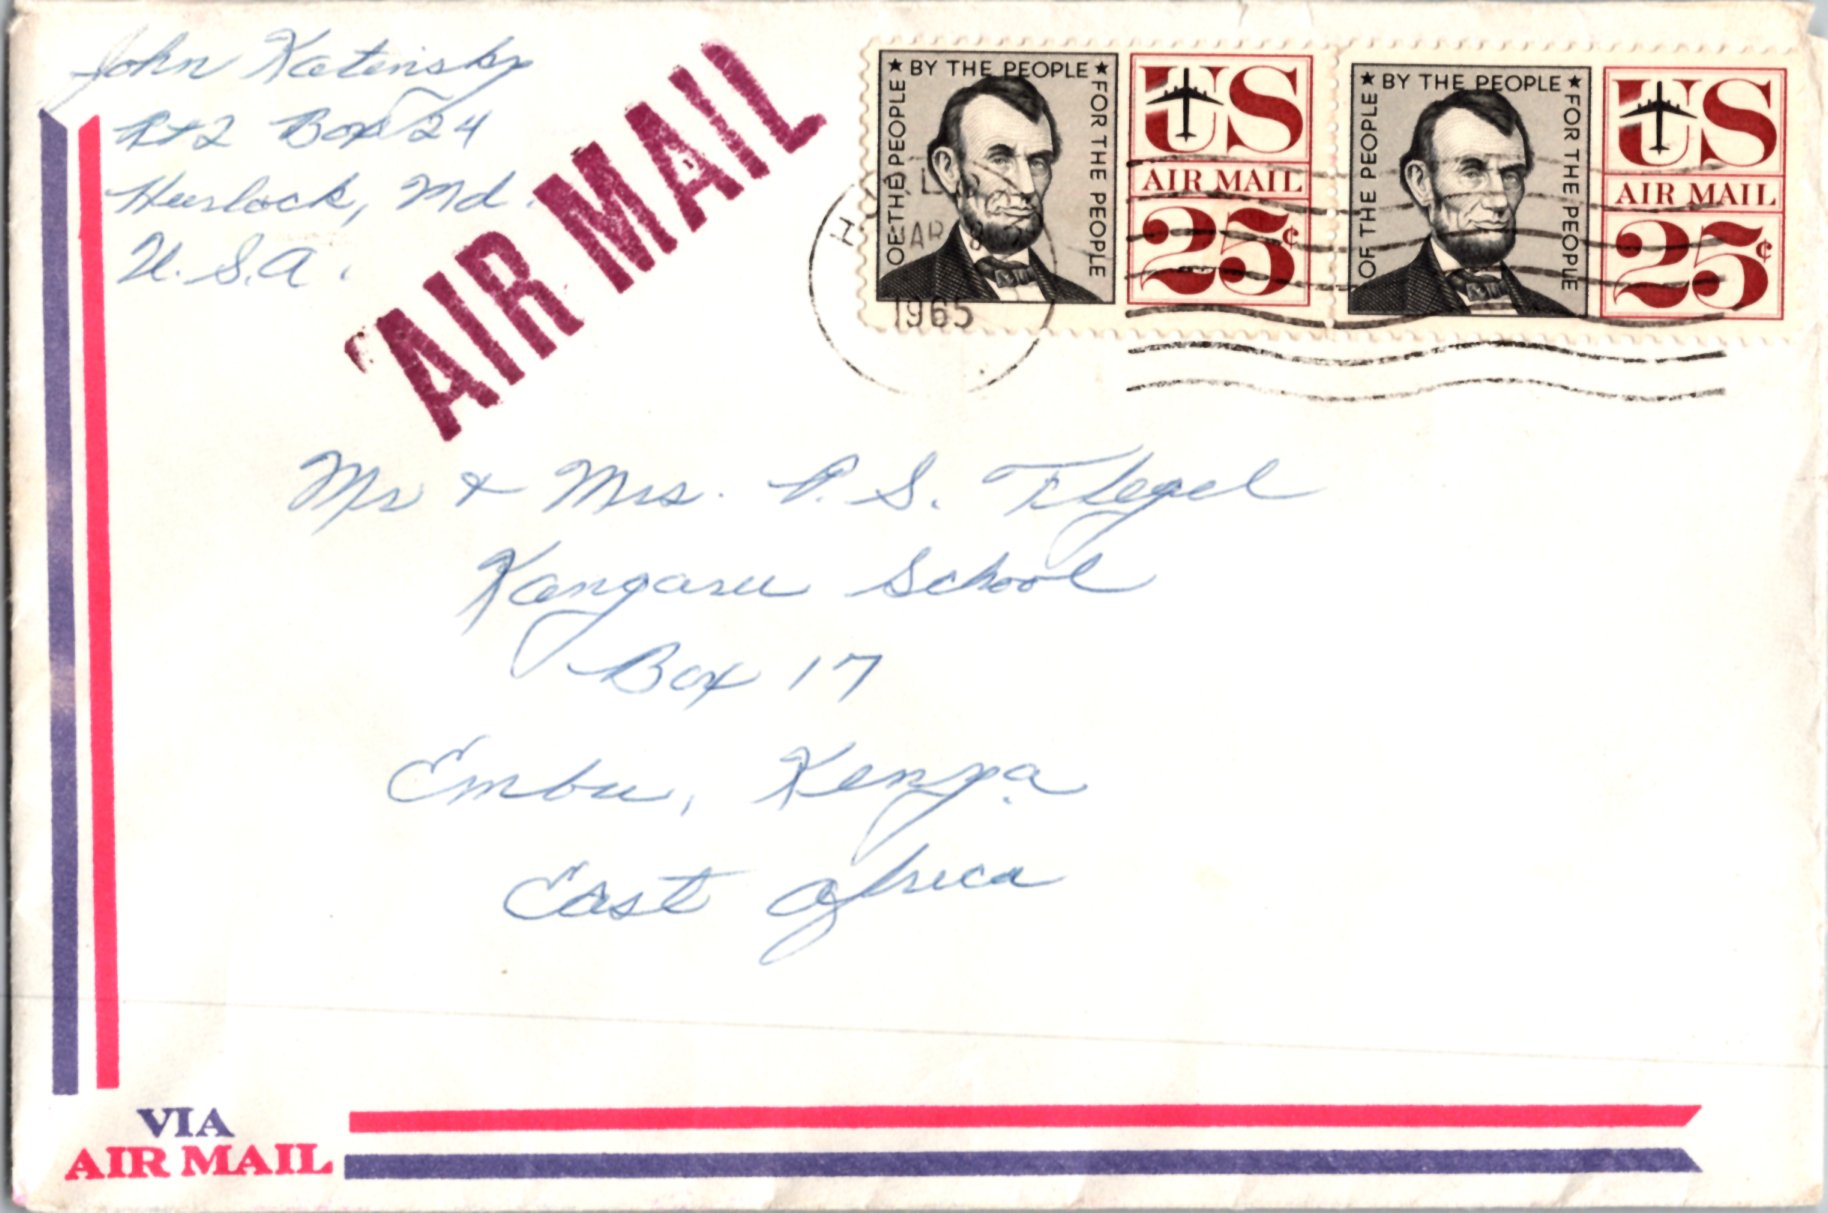 John Katinsky
Rt2 Box 24
Hurlock, Md.
U.S.A.
AIR MAIL
OF THE PEOPLE
★ BY THE PEOPLE ★
FOR THE PEOPLE
US
AIR MAIL
25¢
OF THE PEOPLE
★ BY THE PEOPLE ★
FOR THE PEOPLE
US
AIR MAIL
25¢
1965
Mr & Mrs. P. S. Flegel
Kangaru School
Box 17
Embu, Kenya
East Africa
VIA
AIR MAIL